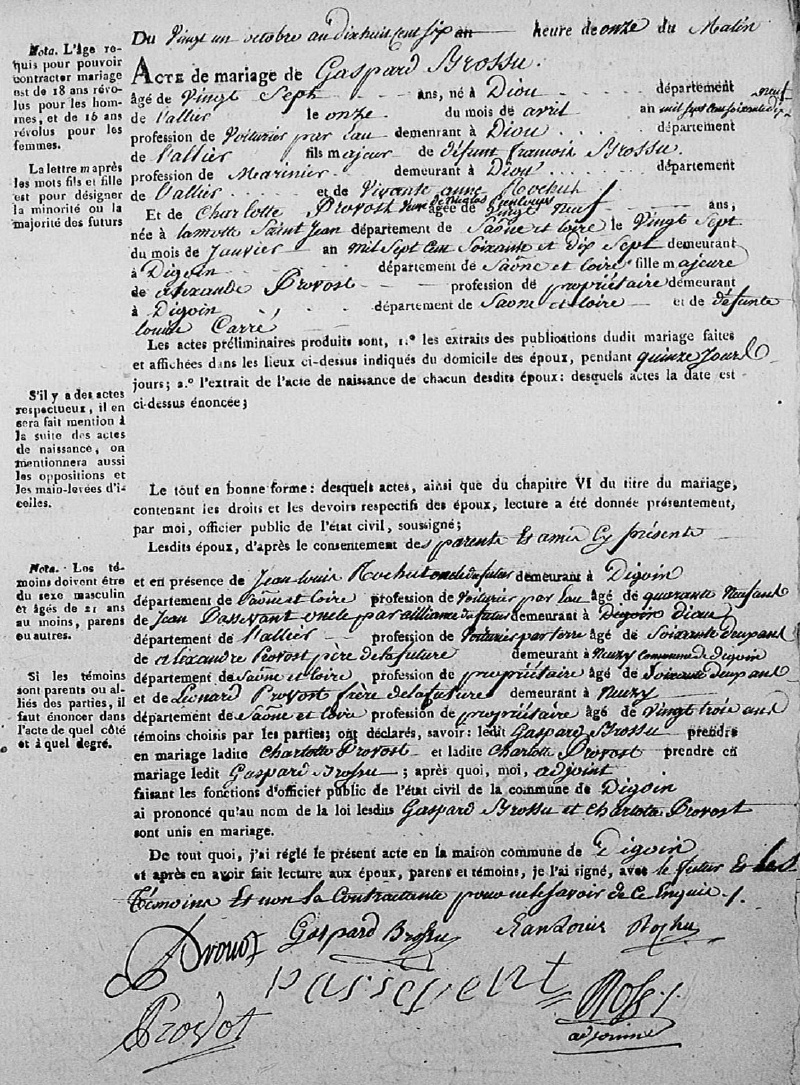 Du Vingt un octobre an dix huit cent six an heure de onze du Matin
ACTE de mariage de Gaspard Brossu.
âgé de Vingt Sept ans, né à Diou département
de l'allier le onze du mois de avril an mil sept cent soixante dix
neuf
profession de Voiturier par Eau demeurant à Diou département
de l'allier fils majeur de défunt françois Brossu.
profession de Marinier demeurant à Diou département
de l'allier et de Vivante anne Rochut
Et de Charlotte Provost Veuve de Nicolas âgée de Vingt Neuf ans,
née à lamotte Saint Jean département de Saône et Loire le Vingt Sept
du mois de Janvier an Mil Sept Cent Soixante et dix Sept demeurant
à Digoin département de Saône et Loire fille majeure
de Alexandre Provost profession de propriétaire demeurant
à Digoin département de Saône et Loire et de défunte
louise Carré
Les actes préliminaires produits sont, 1.º les extraits des publications dudit mariage faites
et affichées dans les lieux ci-dessus indiqués du domicile des époux, pendant quinze Jours
jours; 2.º l'extrait de l'acte de naissance de chacun desdits époux: desquels actes la date est
ci-dessus énoncée;
Le tout en bonne forme: desquels actes, ainsi que du chapitre VI du titre du mariage,
contenant les droits et les devoirs respectifs des époux, lecture a été donnée présentement,
par moi, officier public de l'état civil, soussigné;
Lesdits époux, d'après le consentement des parents Et amis Cy présents
et en présence de Jean Louis Rochut oncle du futur demeurant à Digoin
département de Saône et Loire profession de Voiturier par Eau âgé de quarante Neuf ans
de Jean Passevant oncle par alliance du futur demeurant à Digoin diou
département de l'allier profession de Voiturier par terre âgé de Soixante deux ans
de Alexandre Provost père de la future demeurant à Neuzy Commune de Digoin
département de Saône et Loire profession de propriétaire âgé de Soixante deux ans
et de Léonard Provost frère de la future demeurant à Neuzy
département de Saône et Loire profession de propriétaire âgé de Vingt trois ans
témoins choisis par les parties; ont déclarés, savoir: ledit Gaspard Brossu prendre
en mariage ladite Charlotte Provost et ladite Charlotte Provost prendre en
mariage ledit Gaspard Brossu ; après quoi, moi, adjoint
faisant les fonctions d'officier public de l'état civil de la commune de Digoin
ai prononcé qu'au nom de la loi lesdits Gaspard Brossu et Charlote Provost
sont unis en mariage.
De tout quoi, j'ai réglé le présent acte en la maison commune de Digoin
et après en avoir fait lecture aux époux, parens et témoins, je l'ai signé, avec le futur Et les
Témoins Et non la Contractante pour ne le savoir de Ce Enquis ./.
Provost Gaspard Brossu Jean Louis Rochu
passevent
Provot
adjoint
Nota. L'âge requis pour pouvoir
contracter mariage
est de 18 ans révolus
pour les hommes,
et de 16 ans
révolus pour les
femmes.
La lettre m après
les mots fils et fille
est pour désigner
la minorité ou la
majorité des futurs
S'il y a des actes
respectueux, il en
sera fait mention à
la suite des actes
de naissance, on
mentionnera aussi
les oppositions et
les main-levées d'icelles.
Nota. Les témoins
doivent être
du sexe masculin
et âgés de 21 ans
au moins, parens
ou autres.
Si les témoins
sont parents ou alliés
des parties, il
faut énoncer dans
l'acte de quel côté
et à quel degré.